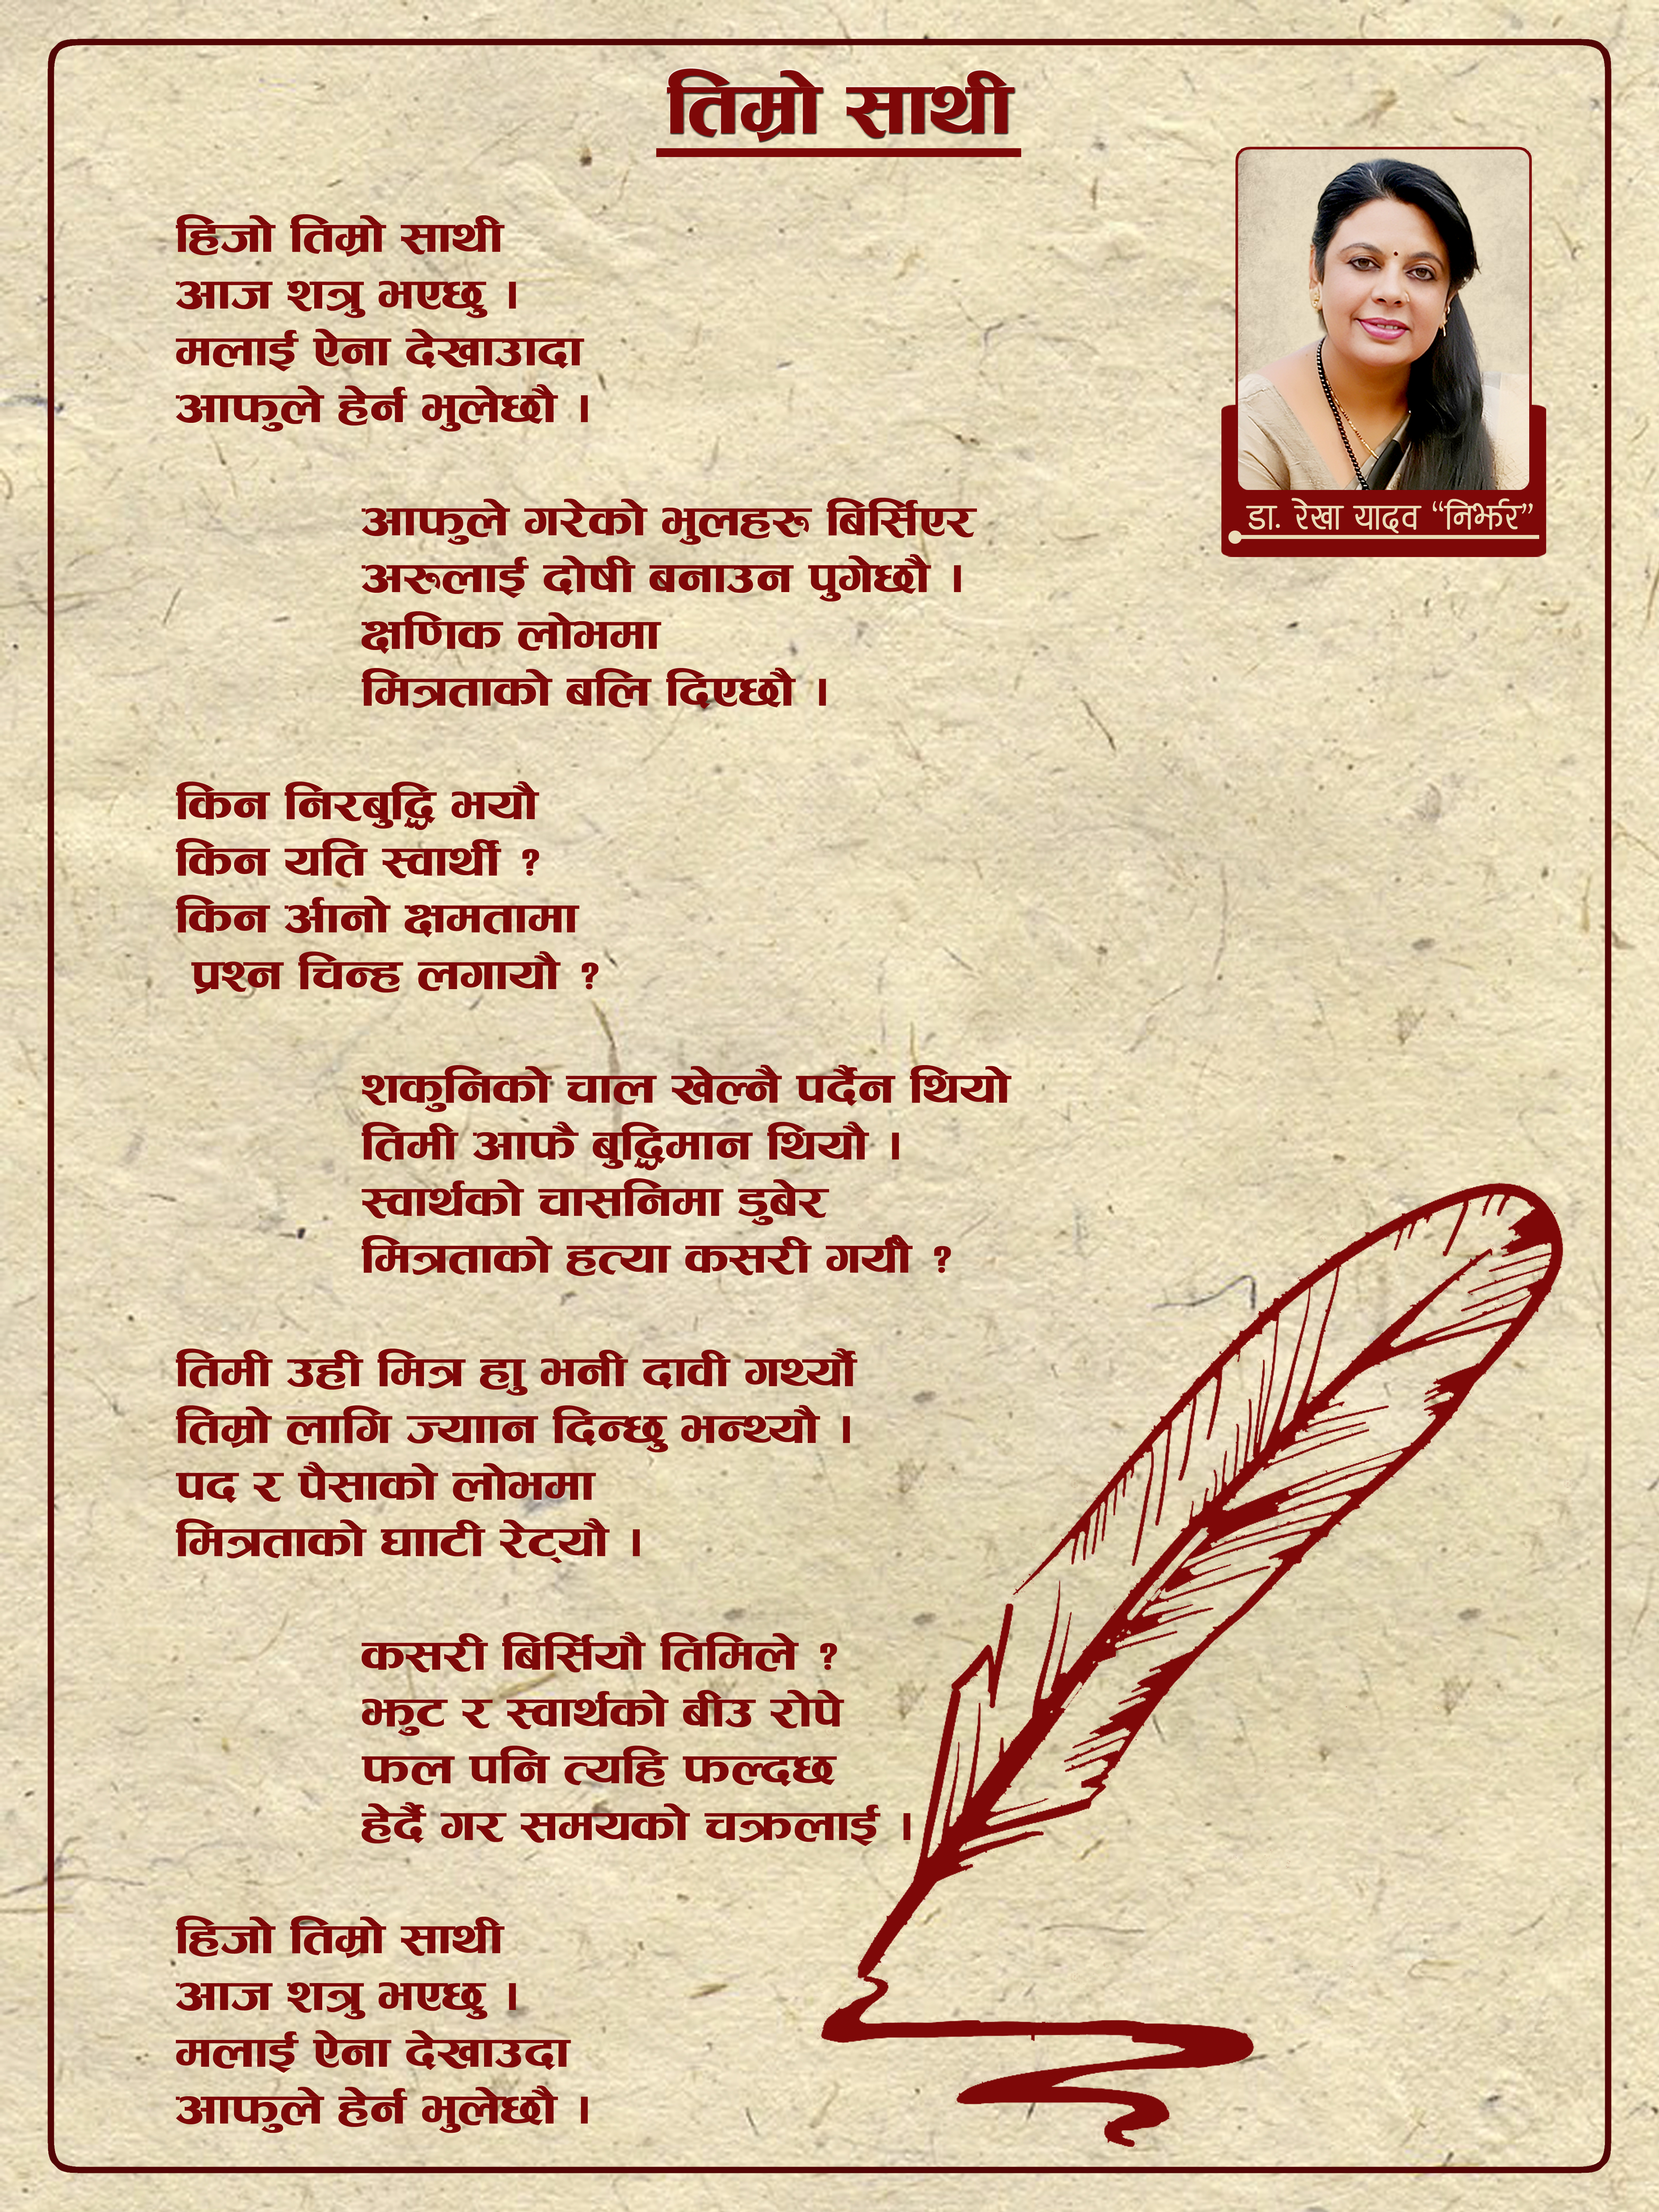 तिम्रो साथी
डा. रेखा यादव “निर्झर”
हिजो तिम्रो साथी
आज शत्रु भएछु ।
मलाई ऐना देखाउादा
आफुले हेर्न भुलेछौ ।
आफुले गरेको भुलहरू बिर्सिएर
अरुलाई दोषी बनाउन पुगेछौ ।
क्षणिक लोभमा
मित्रताको बलि दिएछौ ।
किन निरबुद्धि भयौ
किन यति स्वार्थी ?
किन अर्ानो क्षमतामा
प्रश्न चिन्ह लगायौ ?
शकुनिको चाल खेल्नै पर्दैन थियो
तिमी आफै बुद्धिमान थियौ ।
स्वार्थको चासनिमा डुबेर
मित्रताको हत्या कसरी गर्यौ ?
तिमी उही मित्र हाु भनी दावी गर्थ्यौ
तिम्रो लागि ज्याान दिन्छु भन्थ्यौ ।
पद र पैसाको लोभमा
मित्रताको घााटी रेट्यौ ।
कसरी बिर्सियौ तिमिले ?
झुट र स्वार्थको बीउ रोपे
फल पनि त्यहि फल्दछ
हेर्दै गर समयको चक्रलाई ।
हिजो तिम्रो साथी
आज शत्रु भएछु ।
मलाई ऐना देखाउदा
आफुले हेर्न भुलेछौ ।